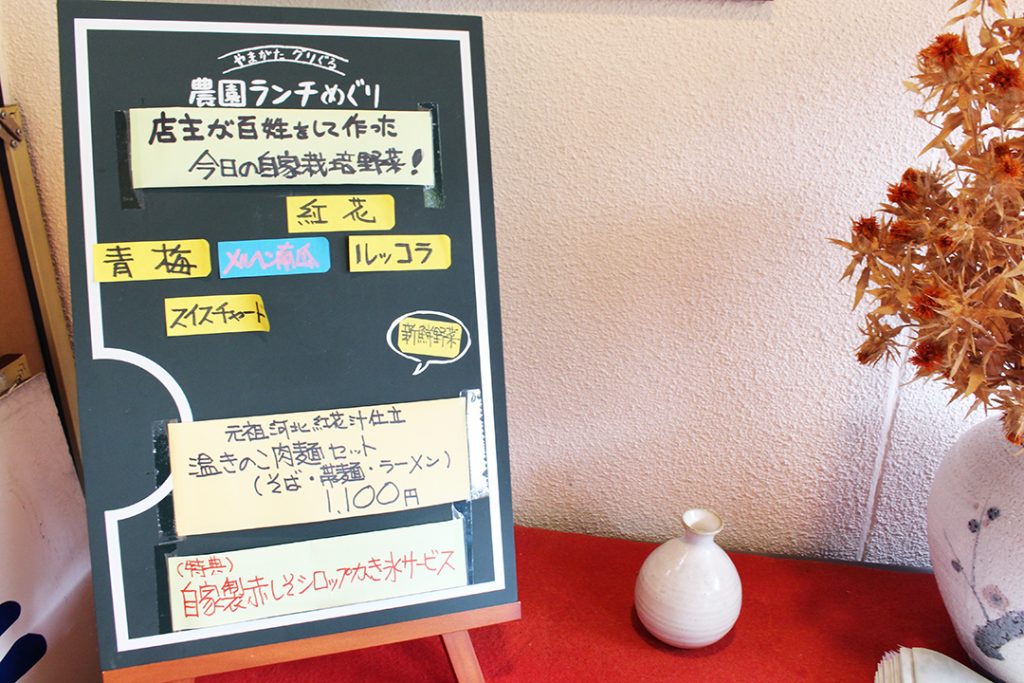 やまがた グリぐる
農園ランチめぐり
店主が百姓をして作った
今日の自家栽培野菜！
紅花
青梅
メルヘン南瓜
ルッコラ
スイスチャート
新鮮野菜
元祖河北紅花汁仕立
温きのこ肉麺セット
(そば・幣麺・ラーメン)
1,100円
(特典)
自家製赤しそシロップかき氷サービス